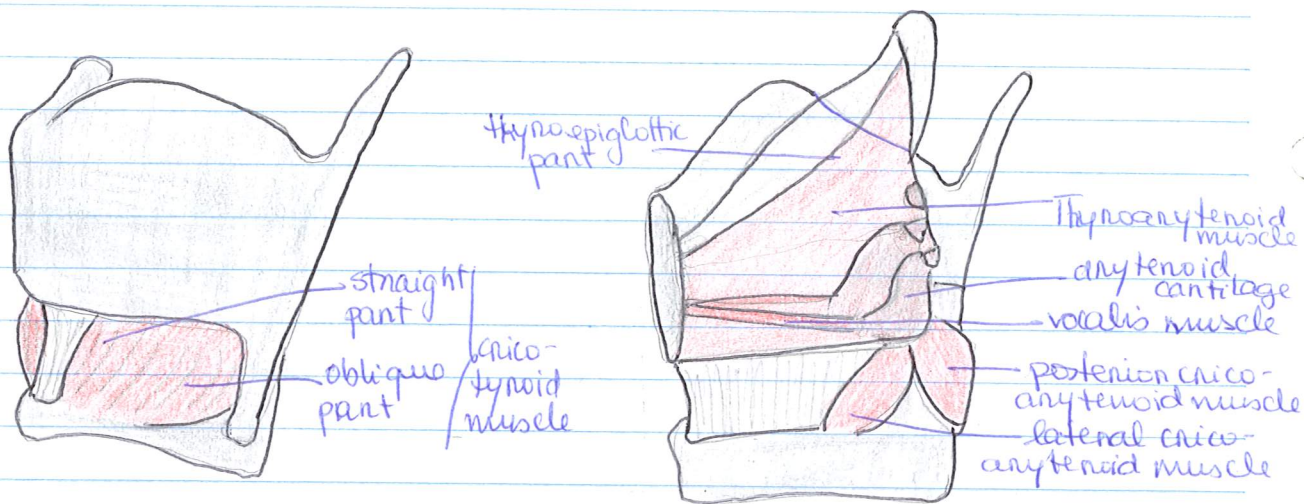 straight
part
oblique
part
crico-
tyroid
muscle
thyroepiglottic
part
Thyroarytenoid
muscle
arytenoid
cartilage
vocalis muscle
posterior crico-
arytenoid muscle
lateral crico-
arytenoid muscle